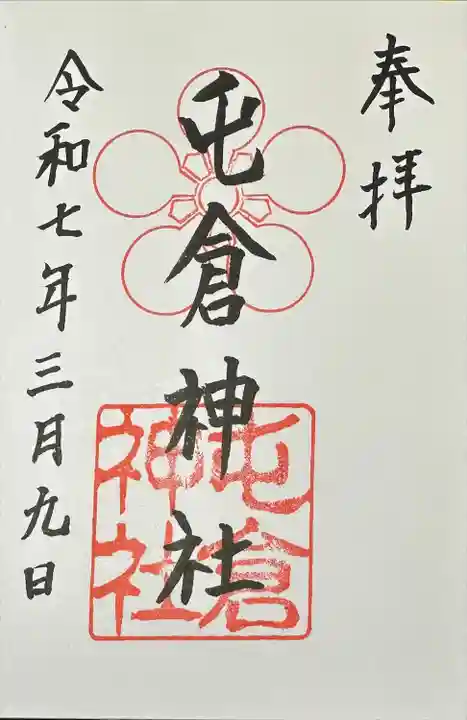 奉拝
屯倉神社
屯倉神社
令和七年三月九日